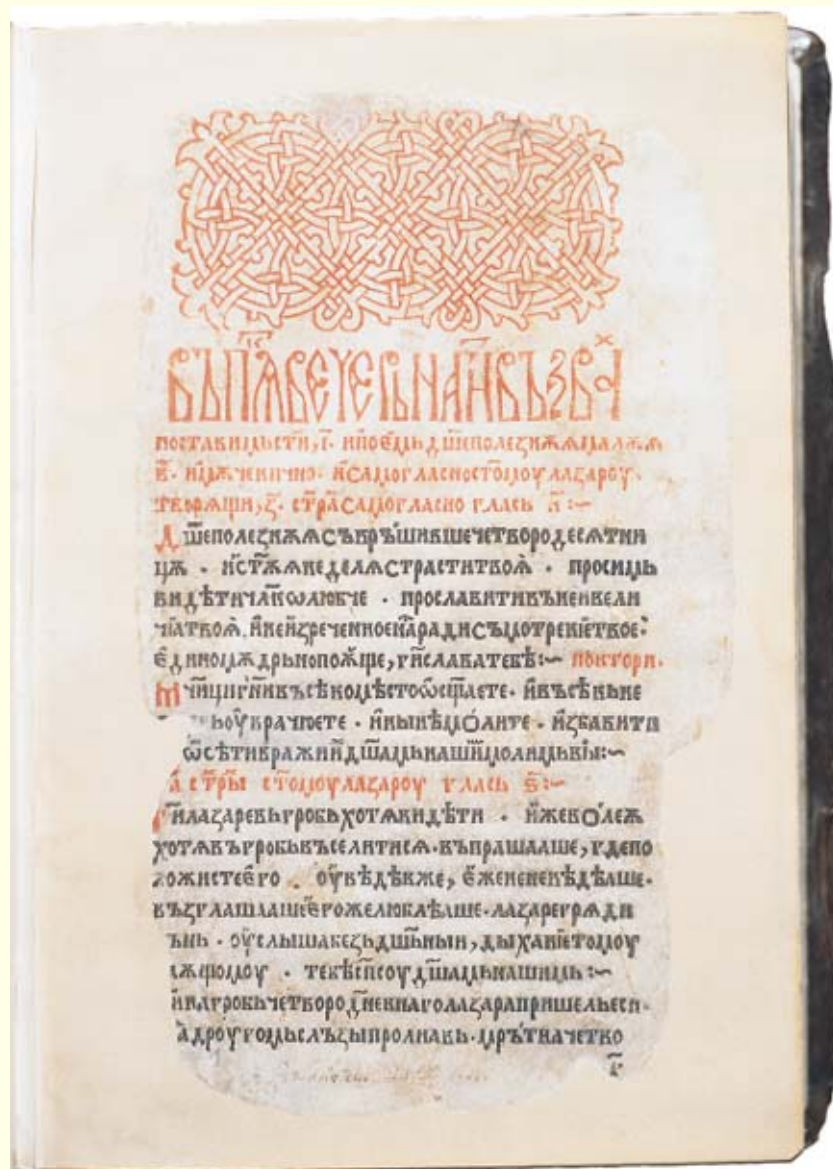 ВЪПѦ҇ВЕЧЕРЬНАГ҃ИВЪЗВА҇Х
поставимьсти҃, г҃. ипоемьд҃шеполезнѫѫ
в҃. имѫченично. исамогласност҃омоулазароу.
творѧщи, ꙁ҃. ст҃расамогласно гласъ и҃:~
Д҃шеполезнѫѫсъврьшившечетвородесѧтни
цѫ · ист҃ѫѫнедѣлѧстраститвоѧ · просимь
видѣтичл҃колюбче · прославитивъненвели
чїатвоꙗ. инеизреченноенарадисъмотренїетвое:
единомѫдрьнопоѫще, г҃иславатебѣ:~ повтори.
м҃чницигн҃ивъсѣкомѣстоѡс҃щаете. ивъсѣкыне
ьоуврачюете · инынѣмолите · избавити
ѿсѣтивражїид҃шамьнашимолимьвы:~
ст҃ры ст҃омоулазароу гласъ ѕ҃:~
Г҃илазаревьгробьхотѧвидѣти · ижеволеѫ
хотѧвъгробьвъселитисѧ·въпрашааше, гдепо
ложистеего · оувѣдѣвже, еженевѣдѣаше·
възглашашеегожелюблѣаше·лазарегрѧди
ънь · оуслышабезьд҃шныи, дыханїетомоу
ѫщомоу · тебѣсп҃соуд҃шамьнашимь:~
инагробьчетвородн҃евнаголазарапришельеси·
адроугомьслъзыпролиавь·мрьтначетво
г҃